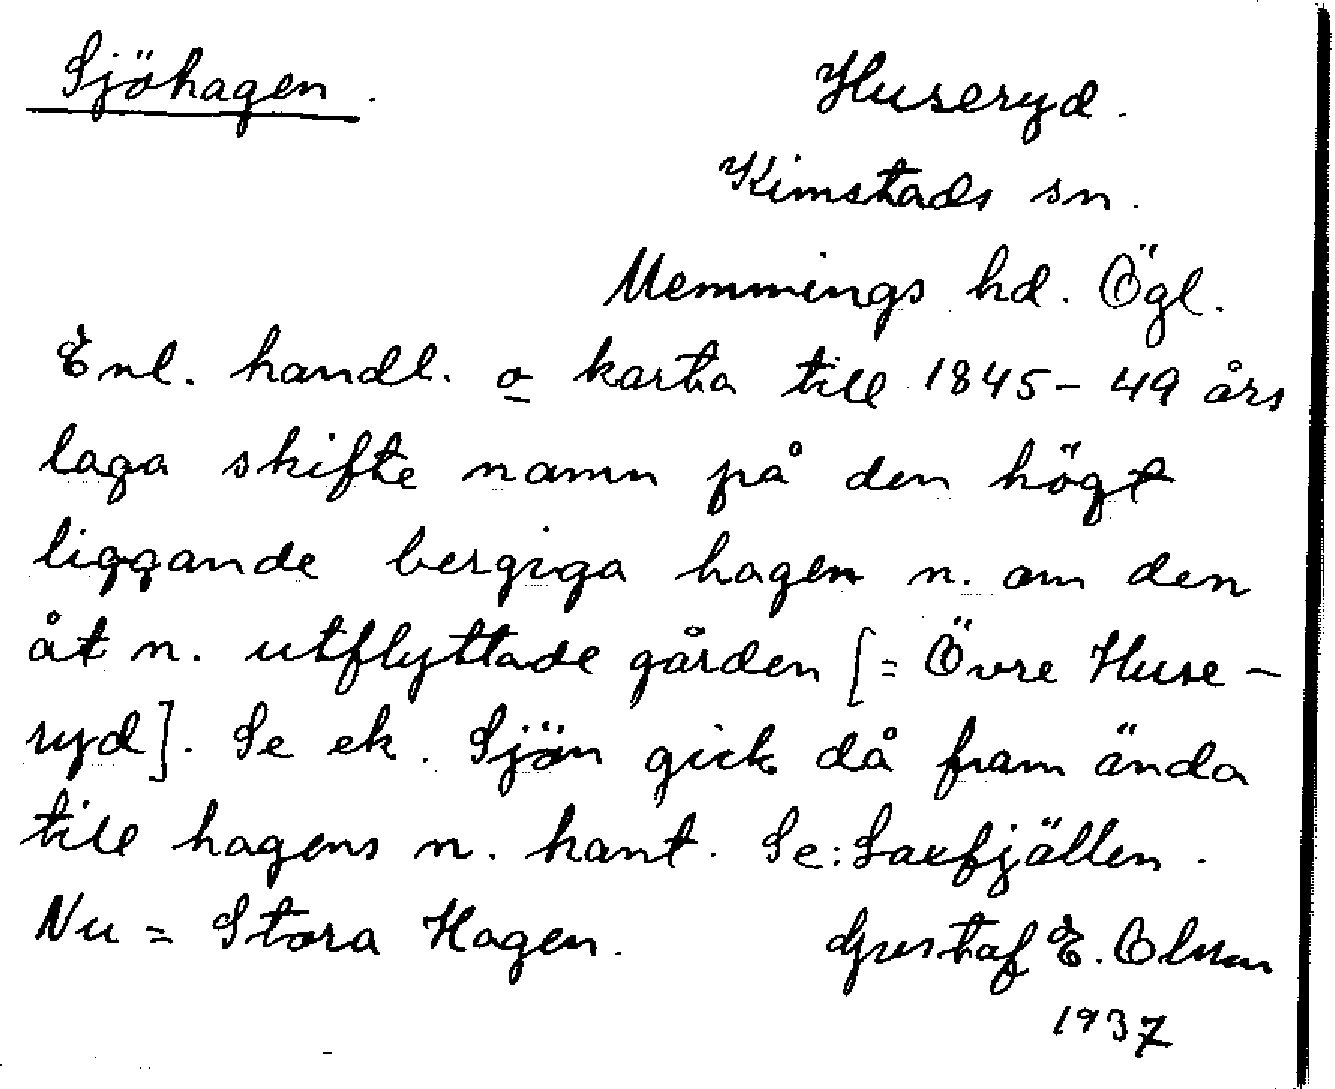 Sjöhagen.
Huseryd.
Kimstads sn.
Memmings hd. Ögl.
Enl. handl. o karta till 1845-49 års
laga skifte namn på den högt
liggande bergiga hagen n. om den
åt n. utflyttade gården [= Övre Huse-
ryd]. Se ek. Sjön gick då fram ända
till hagens n. kant. Se: Laxfjällen.
Nu = Stora Hagen. Gustaf E. Olsson
1937